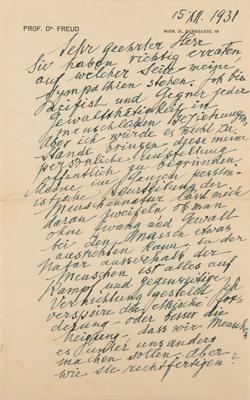 15 XII. 1931
PROF. DR. FREUD
WIEN, IX., BERGGASSE 19
Sehr geehrter Herr
Sie haben richtig erraten
auf welcher Seite meine
Sympathien stehen. Ich bin
Pazifist und Gegner jeder
Gewaltthätigkeit in
menschlichen Beziehungen.
Aber ich würde es nicht zu
Stande bringen, diese meine
persönliche
öffentlich zu begründen.
Meine im Ganzen pessim-
istische Beurteilung der
Menschennatur lässt mich
daran zweifeln ob man
ohne Zwang und Gewalt
bei den Menschen etwas
ausrichten kann. In der
Natur ausserhalb der
Menschen ist alles auf
Kampf und gegenseitige
Vernichtung gestellt. Ich
verspüre die ethische For
derung oder besser die
Neigung – dass wir Menschen
es unter uns anders
machen sollen. Aber
wie sie rechtfertigen?